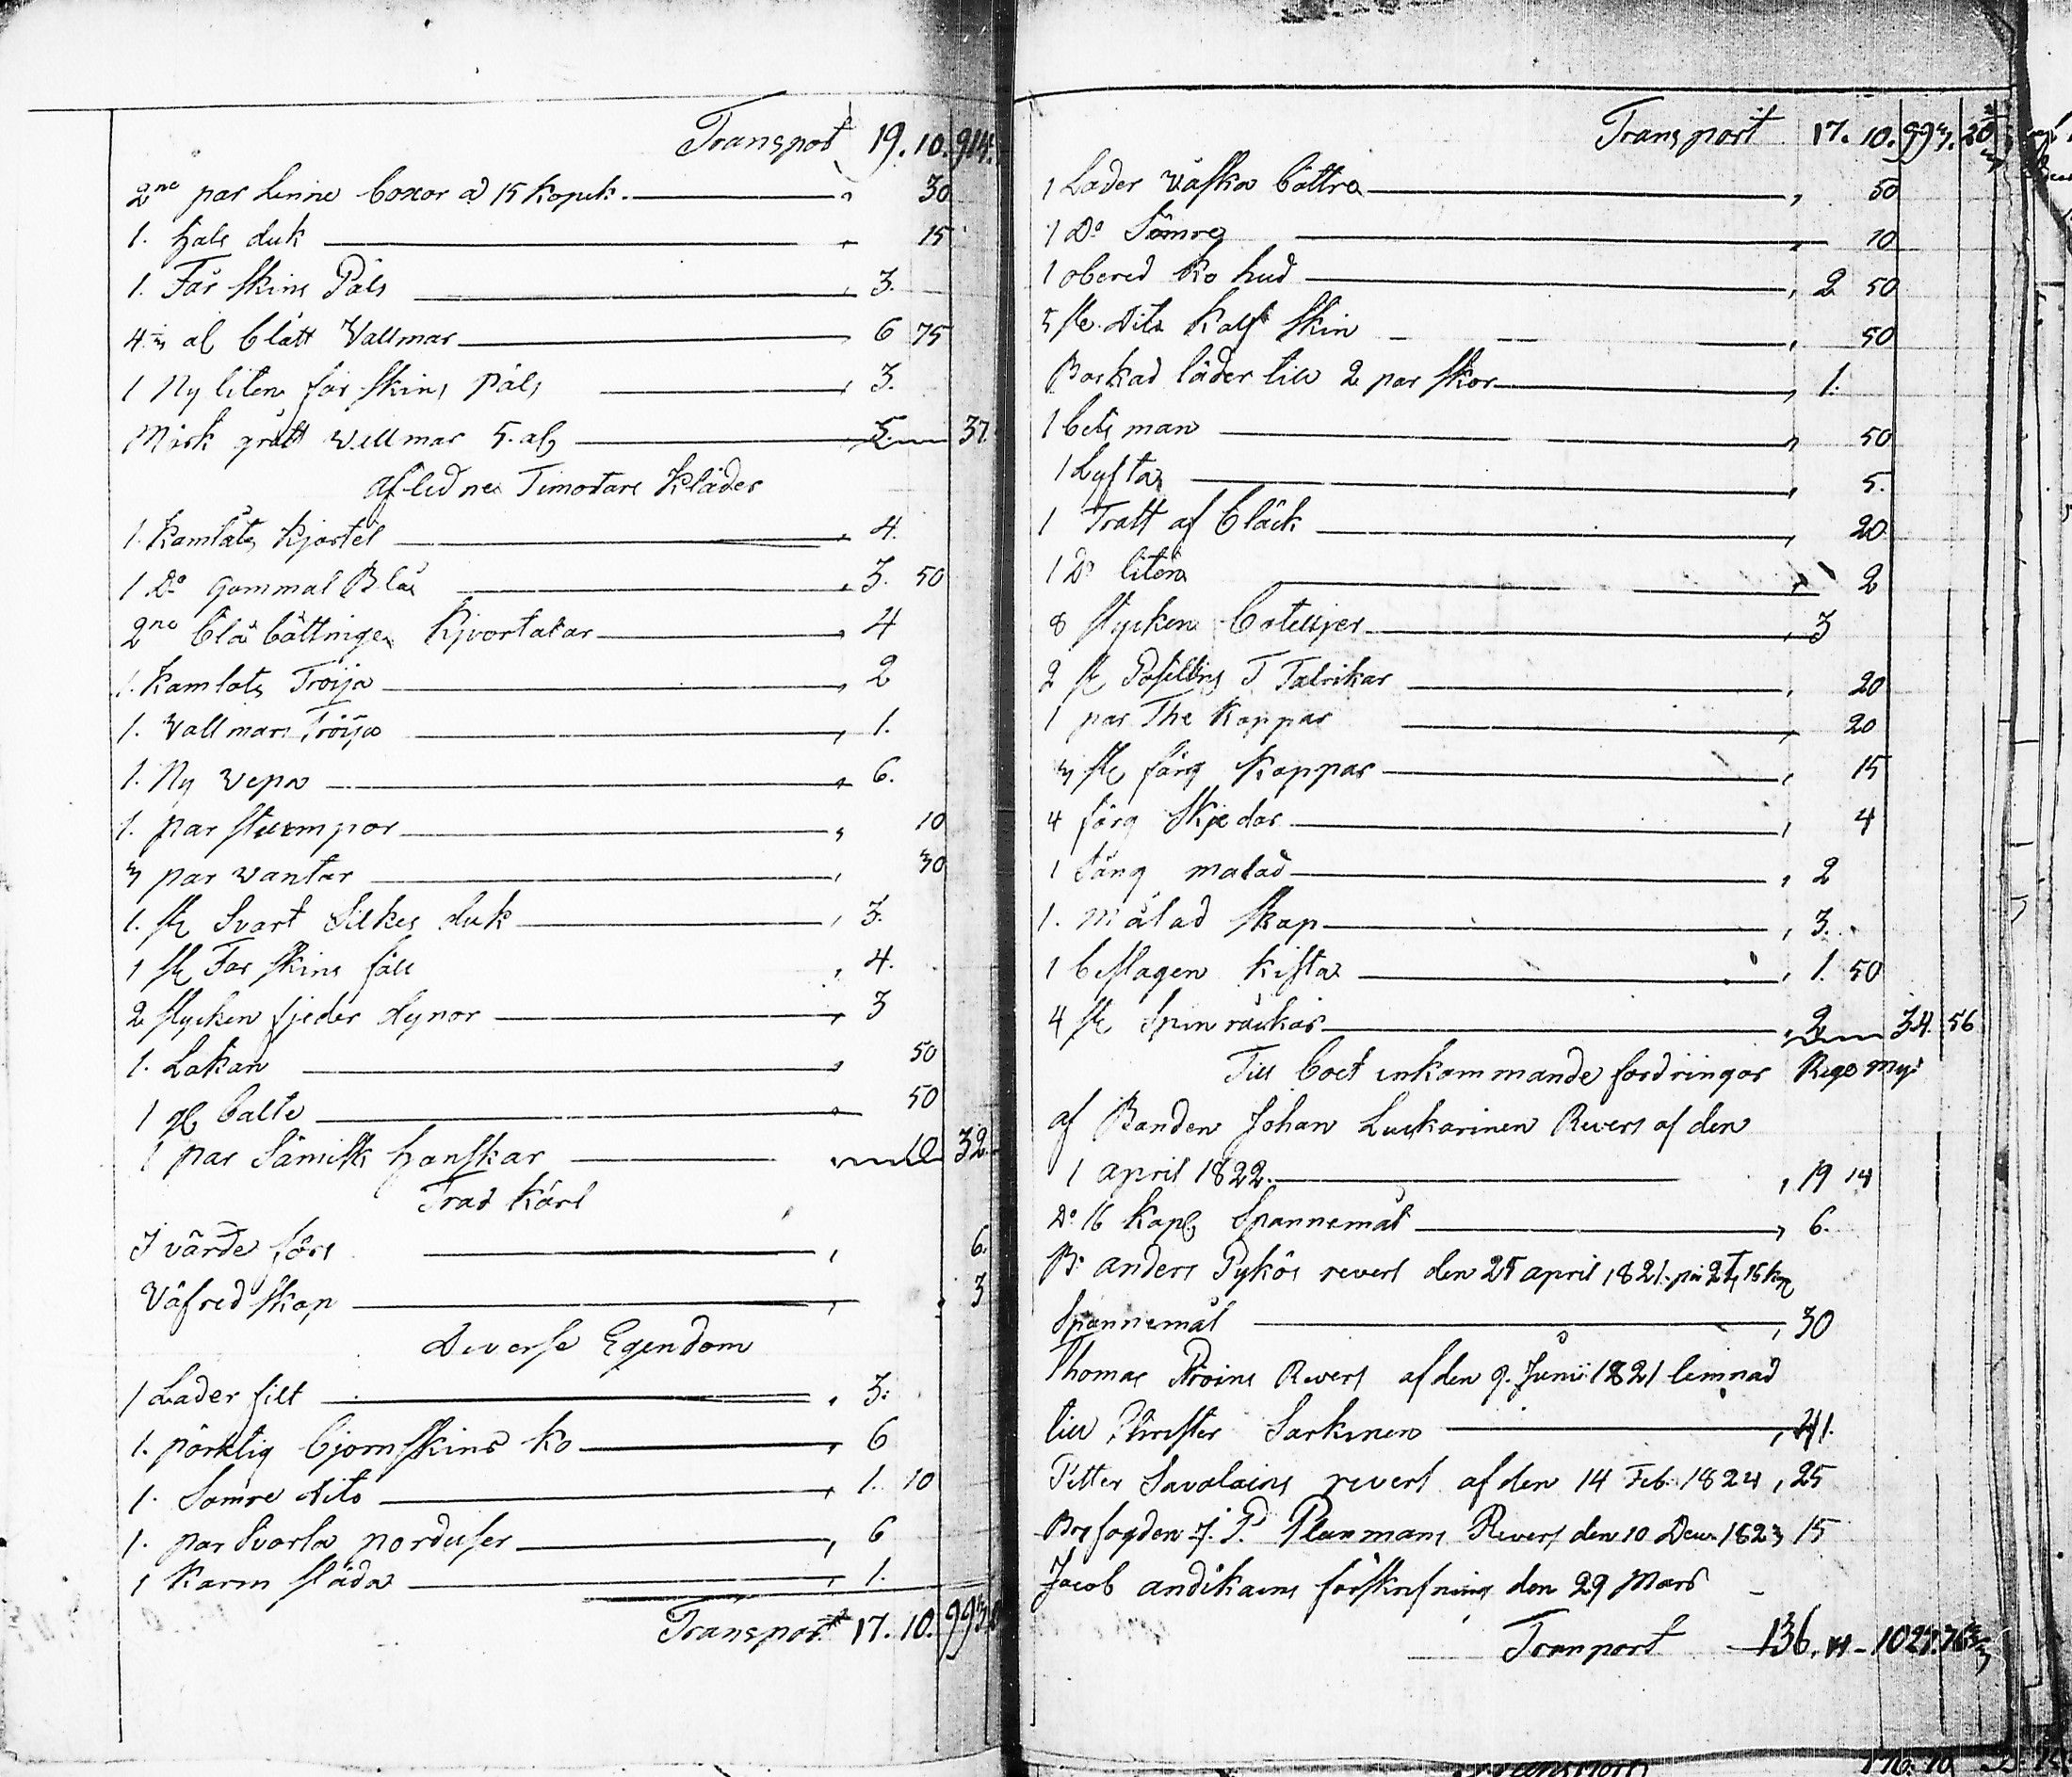 Transport 19. 10. 914.
2ne par Linne boxor a 15 Kopek. " 30
1. hals duk " 15
1. Får skins Päls " 3.
4 ½ al blått Vallmar " 6 75
1 Ny liten får skins Päls " 3.
Mörk grått Vallmar 5. aln " 5. 37.
aflednes Timotars Kläder
1. Kamlåts Kjortel " 4.
1 Do gammal Blå " 3. 50
2ne blå bättninge Kjortalar " 4
1. Kamlots Tröija " 2
1. Vallmars Tröija " 1.
1. Ny Vepa " 6.
1. par strumpor " 10
3 par Vantar " 30
1. st Svart Silkes duk " 3.
1 st Får skins fäll " 4.
2 stycken fjeder dynor " 3
1. Lakan " 50
1 gl bälte " 50
1 par Sämisk hanskar " 10 32.
Träd Kärl
I värde förs " 6.
Väfred skap " 3
Diverse Egendom
1 Läder filt " 3.
1. björnskins ko " 6
1. Sämre dito " 1. 10
1. par Svarta " 6
1 Karm släda " 1.
Transport 17. 10. 993
Transport 17. 10. 993. 20
1 Läder väska bättra " 50
1 Do Sämre " 10
1 obered ko hud " 2 50
5 st. Dito Kalf skin " 50
Barkad läder till 2 par skor " 1.
1 bets man " 50
1 Lyfta " 5.
1 Tratt af bläck " 20
1 Do liten " 2
8 stycken boteljer " 3
2 st T Talrikar " 20
1 par The Koppar " 20
3 st färg Koppar " 15
4 färg Skjedar " 4
1 Säng målad " 2
1. målad skap " 3.
1 beslagen kista " 1. 50
4 st Spin råckar " 2 34. 56
Till boet inkommande fordringar
af Bonden Johan Luckarinen Revers af den
1 april 1822. " 19 14
Do 16 Kap Spannemål " 6.
B: anders Pykös revers den 25 april 1821 på 2 t 15 kap
Spannemål " 30
Thomas Revers af den 9. Junii 1821 lemnad
till Christer Sarkinen " 41.
Petter Savolains revers af den 14 Feb. 1824 " 25
J. P. Planmans Revers den 10 Dec. 1823 15
Jacob andikains förskrifning den 29 Mars
Tranport 136. 14 - 1027. 76